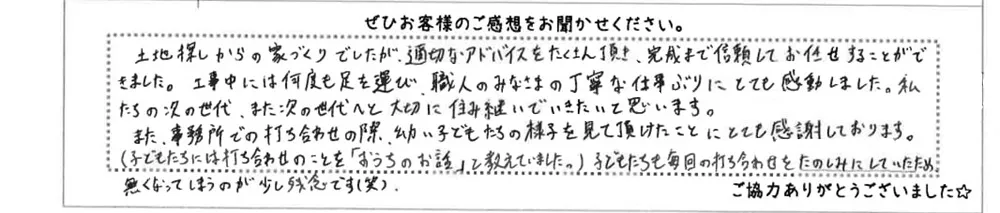 ぜひお客様のご感想をお聞かせください。
土地探しからの家づくりでしたが、適切なアドバイスをたくさん頂き、完成まで信頼してお任せすることがで
きました。工事中には何度も足を運び、職人のみなさまの丁寧な仕事ぶりにとても感動しました。私
たちの次の世代、また次の世代へと大切に住み継いでいきたいと思います。
また、事務所での打ち合わせの際、幼い子どもたちの様子を見て頂けたことにとても感謝しております。
(子どもたちには打ち合わせのことを「おうちのお話」と教えていました。)子どもたちも毎回の打ち合わせをたのしみにしていたため
無くなってしまうのが少し残念です(笑).
ご協力ありがとうございました☆